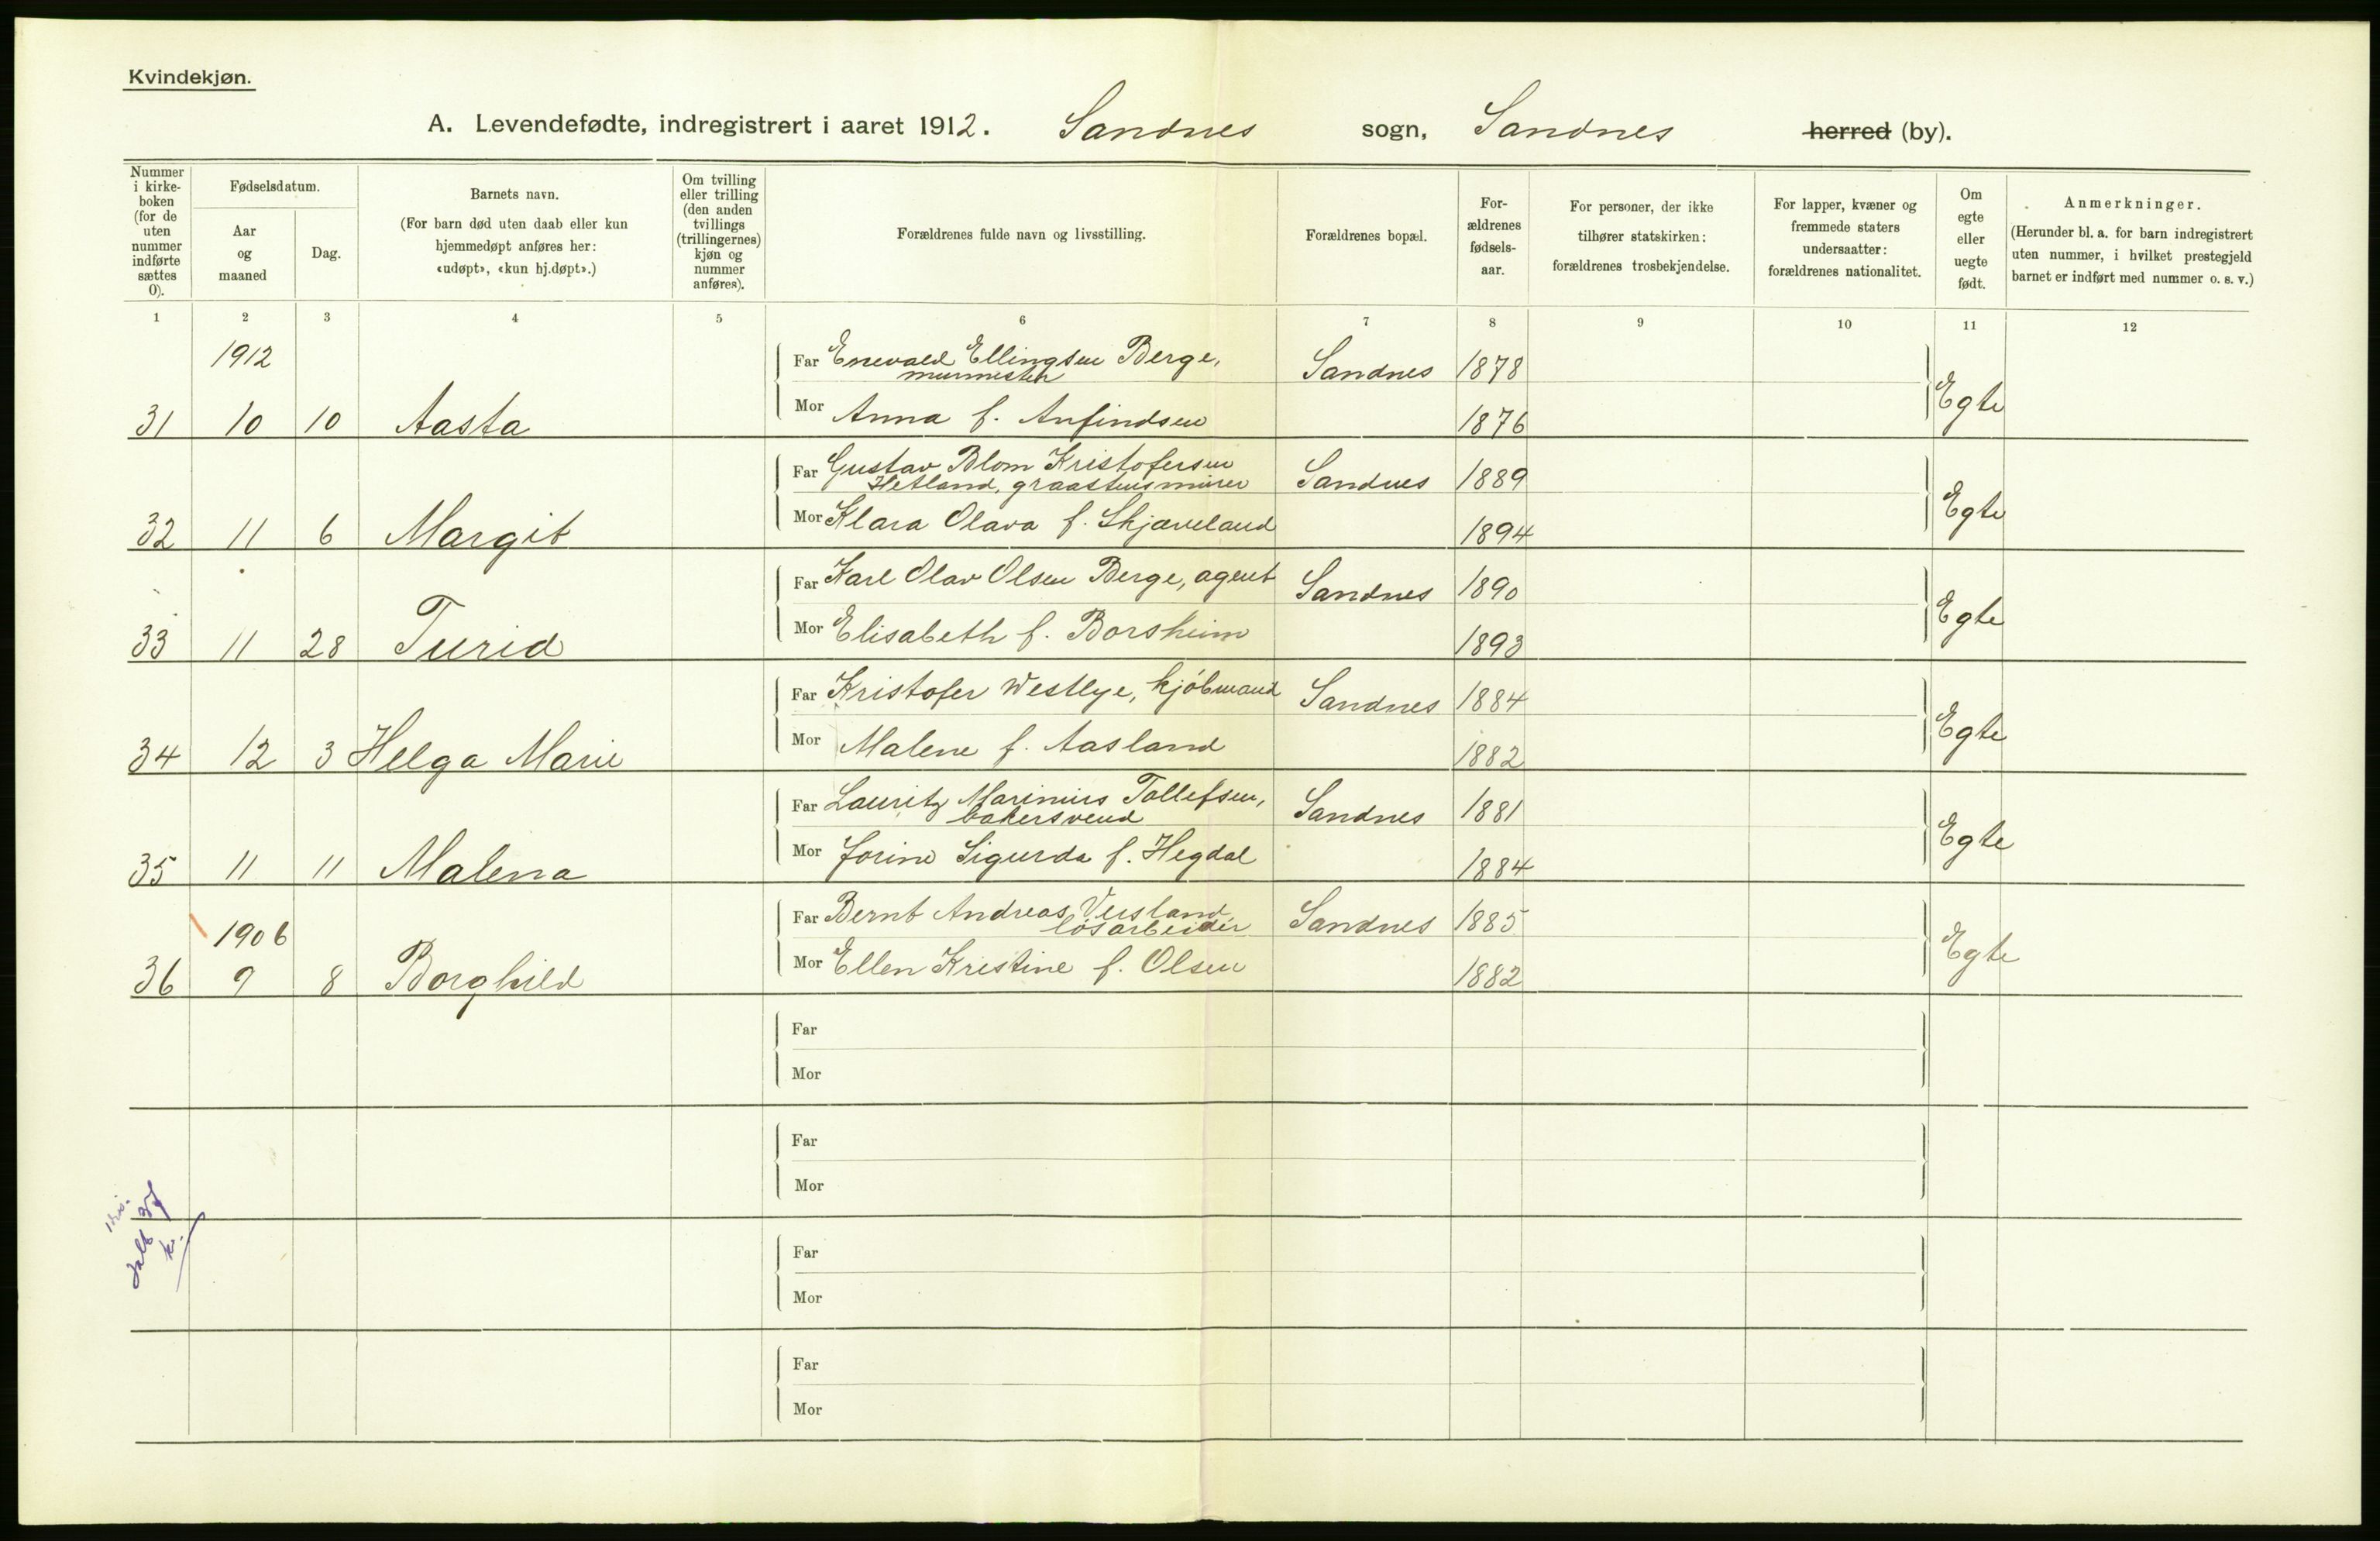 Kvindekjøn.
A. Levendefødte, indregistrert i aaret 1912. Sandnes sogn, Sandnes herred (by).
Nummer i kirke- boken (for de uten nummer indførte sættes 0).
Fødselsdatum.
Aar og maaned
Dag.
Barnets navn.
(For barn død uten daab eller kun
hjemmedøpt anføres her:
«udøpt», «kun hj.døpt».)
Om tvilling eller trilling (den anden tvillings (trillingernes) kjøn og nummer anføres).
Forældrenes fulde navn og livsstilling.
Forældrenes bopæl.
For- ældrenes fødsels- aar.
For personer, der ikke
tilhører statskirken:
forældrenes trosbekjendelse.
For lapper, kvæner og
fremmede staters
undersaatter:
forældrenes nationalitet.
Om egte eller uegte født.
Anmerkninger.
(Herunder bl. a. for barn indregistrert
uten nummer, i hvilket prestegjeld
barnet er indført med nummer o. s. v.)
1 2 3 4 5 6 7 8 9 10 11 12
1912
Far Enevald Ellingsen Berge, Sandnes 1878
murmester
31 10 10 Aasta Mor Anna f. Anfindsen 1876 Egte
Far Gustav Blom Kristofersen Sandnes 1889
Hetland, graastensmurer
32 11 6 Margit Mor Klara Olava f. Skjæveland 1894 Egte
Far Karl Olav Olsen Berge, agent Sandnes 1890
33 11 28 Turid Mor Elisabeth f. Borsheim 1893 Egte
Far Kristofer Westlye, kjøbmand Sandnes 1884
34 12 3 Helga Marie Mor Malene f. Aasland 1882 Egte
Far Lauritz Marinius Tollefsen, Sandnes 1881
bakersvend
35 11 11 Malena Mor Jorine Sigurda f. Hegdal 1884 Egte
1906
Far Bernt Andreas Versland, Sandnes 1885
løsarbeider
36 9 8 Borghild Mor Ellen Kristine f. Olsen 1882 Egte
Far
Mor
Far
Mor
Far
Mor
Far
Mor